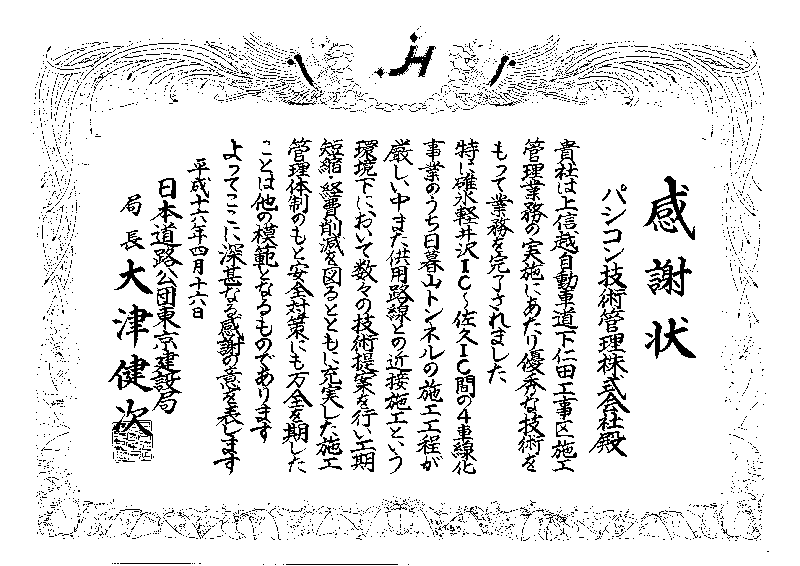 JH
感謝状
パシコン技術管理株式会社殿
貴社は上信越自動車道下仁田工事区施工
管理業務の実施にあたり優秀な技術を
もって業務を完了されました
特に碓氷軽井沢IC～佐久IC間の4車線化
事業のうち日暮山トンネルの施工工程が
厳しい中また供用路線との近接施工という
環境下において数々の技術提案を行い工期
短縮・経費削減を図るとともに充実した施工
管理体制のもと安全対策にも万全を期した
ことは他の模範となるものであります
よってここに深甚なる感謝の意を表します
平成十六年四月十六日
日本道路公団東京建設局
局長 大津健次